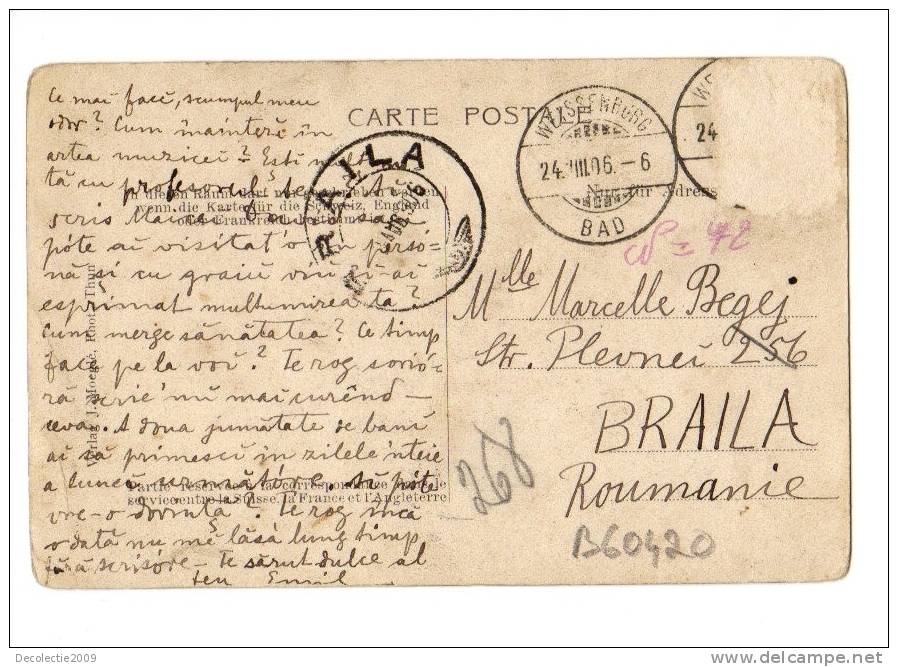 CARTE POSTALE
Ce mai faci, scumpul meu
odor? Cum înaintezi în
artea muzicei? Ești mulț-
tă cu profesorul, te
scris Maicei
póte ai visitat'o în persó-
nă și cu graiu viu ți-ai
esprimat mulțumirea ta?
Cum merge sănătatea? Ce timp
face pe la voi? Te rog surió-
ră scrie nu mai curênd
ceva. A doua jumătate de bani
ai să primesci în zilele înteie
a lunei
vre-o dorință? Te rog încă
o dată nu mĕ lăsa lung timp
fără scrisóre. Te sărut dulce al
teu Emil
In diesen Raum darf nur geschrieben werden
wenn die Karte für die Schweiz, England
oder Frankreich bestimmt ist.
Partie réservée à la correspondance
service entre la Suisse, la France et l'Angleterre
Verlag J. Moegle, Phot., Thun
BRAILA
WEISSENBURG
24.VIII.06.-6
BAD
WE
24
Nur für Adresse
N = 72
Mlle Marcelle Begej
Str. Plevnei 256
BRAILA
Roumanie
268
B60420
Decolectie2009
www.delcampe.net